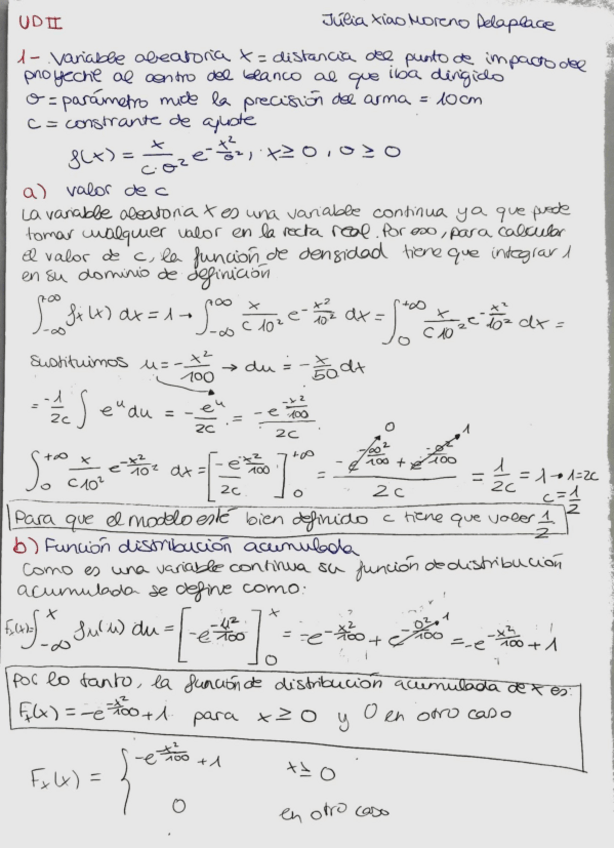 UD II
Júlia Xiao Moreno Delaplace
1- Variable aleatoria X = distancia del punto de impacto del
proyectil al centro del blanco al que iba dirigido
σ = parámetro mide la precisión del arma = 10cm
c = constrante de ajuste
f(x) = x/(c·σ²) e^(-x²/σ²), x ≥ 0, σ ≥ 0
a) valor de c
La variable aleatoria X es una variable continua ya que puede
tomar cualquier valor en la recta real. Por eso, para calcular
el valor de c, la función de densidad tiene que integrar 1
en su dominio de definición
∫_{-∞}^{+∞} f_x(x) dx = 1 → ∫_{-∞}^{+∞} x/(c10²) e^(-x²/10²) dx = ∫_0^{+∞} x/(c10²) e^(-x²/10²) dx =
sustituimos u = -x²/100 → du = -x/50 dx
= -1/2c ∫ e^u du = -e^u/2c = -e^(-x²/100)/2c
∫_0^{+∞} x/(c10²) e^(-x²/10²) dx = [-e^(-x²/100)/2c]_0^{+∞} = (-e^(-∞²/100) + e^(-0²/100))/2c = 1/2c = 1 → 1=2c
0
1
c = 1/2
Para que el modelo esté bien definido c tiene que valer 1/2
b) Función distribución acumulada
Como es una variable continua su función de distribución
acumulada se define como:
F_x(x)= ∫_{-∞}^x f_u(u) du = [-e^(-u²/100)]_0^x = -e^(-x²/100) + e^(-0²/100) = -e^(-x²/100) + 1
1
Por lo tanto, la función de distribución acumulada de X es:
F_x(x) = -e^(-x²/100) + 1 para x ≥ 0 y 0 en otro caso
F_x(x) = { -e^(-x²/100) + 1 x ≥ 0
0 en otro caso